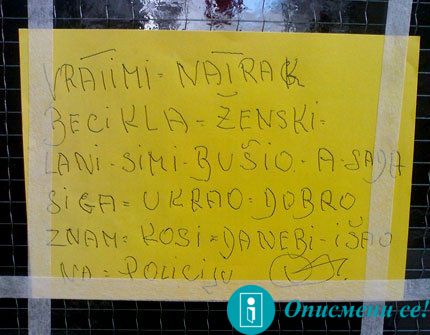 VRATIMI = NATRAG
BECIKLA = ŽENSKI =
LANI = SIMI = BUŠIO = A = SADA
SIGA = UKRAO = DOBRO
ZNAM = KOSI = DANEBI = IŠAO
NA = POLICIJU
Описмени се!